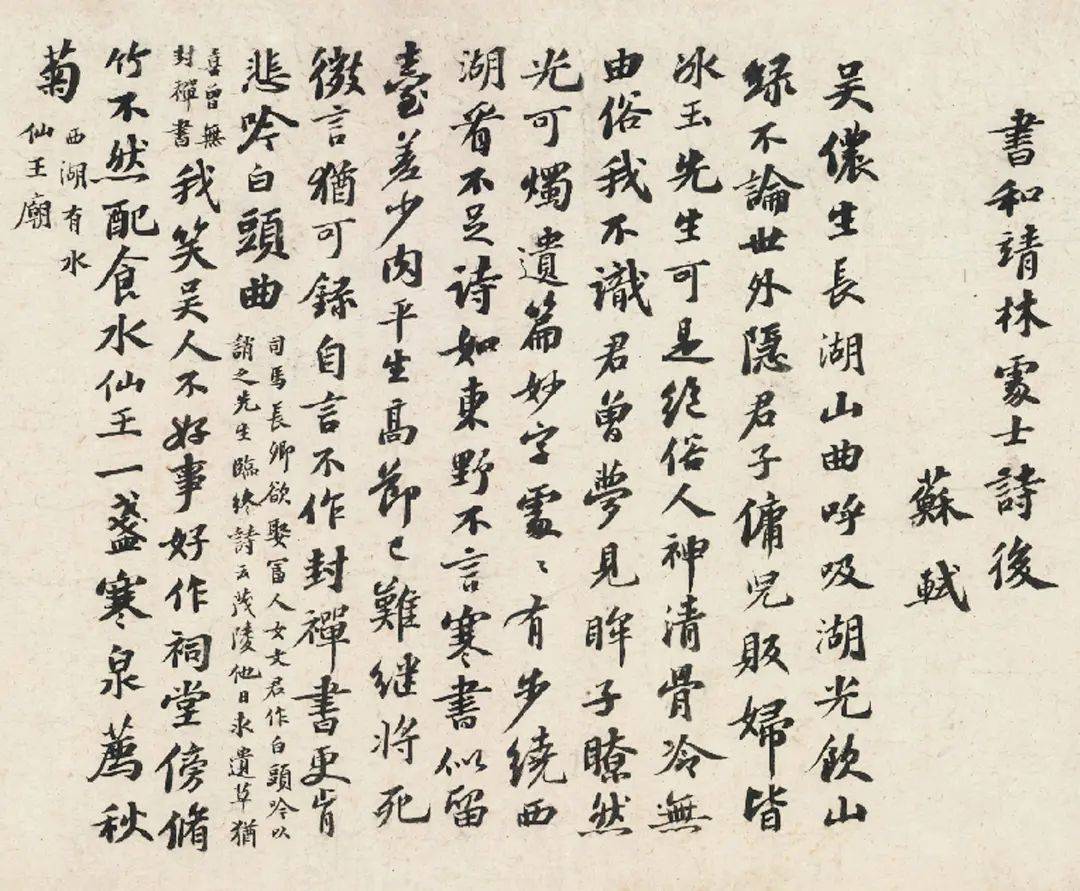 書和靖林處士詩後
蘇軾
吳儂生長湖山曲呼吸湖光飲山
緑不論世外隱君子傭兒販婦皆
冰玉先生可是絕俗人神清骨冷無
由俗我不識君曾夢見眸子瞭然
光可燭遺篇妙字處〻有步繞西
湖看不足詩如東野不言寒書似留
臺差少肉平生高節已難継將死
微言猶可錄自言不作封禪書更肯
悲吟白頭曲
司馬長卿欲娶富人女文君作白頭吟以
誚之先生臨終詩云茂陵他日求遺草猶
喜曾無
封禪書
我笑吳人不好事好作祠堂傍脩
竹不然配食水仙王一盞寒泉薦秋
菊
西湖有水
仙王廟